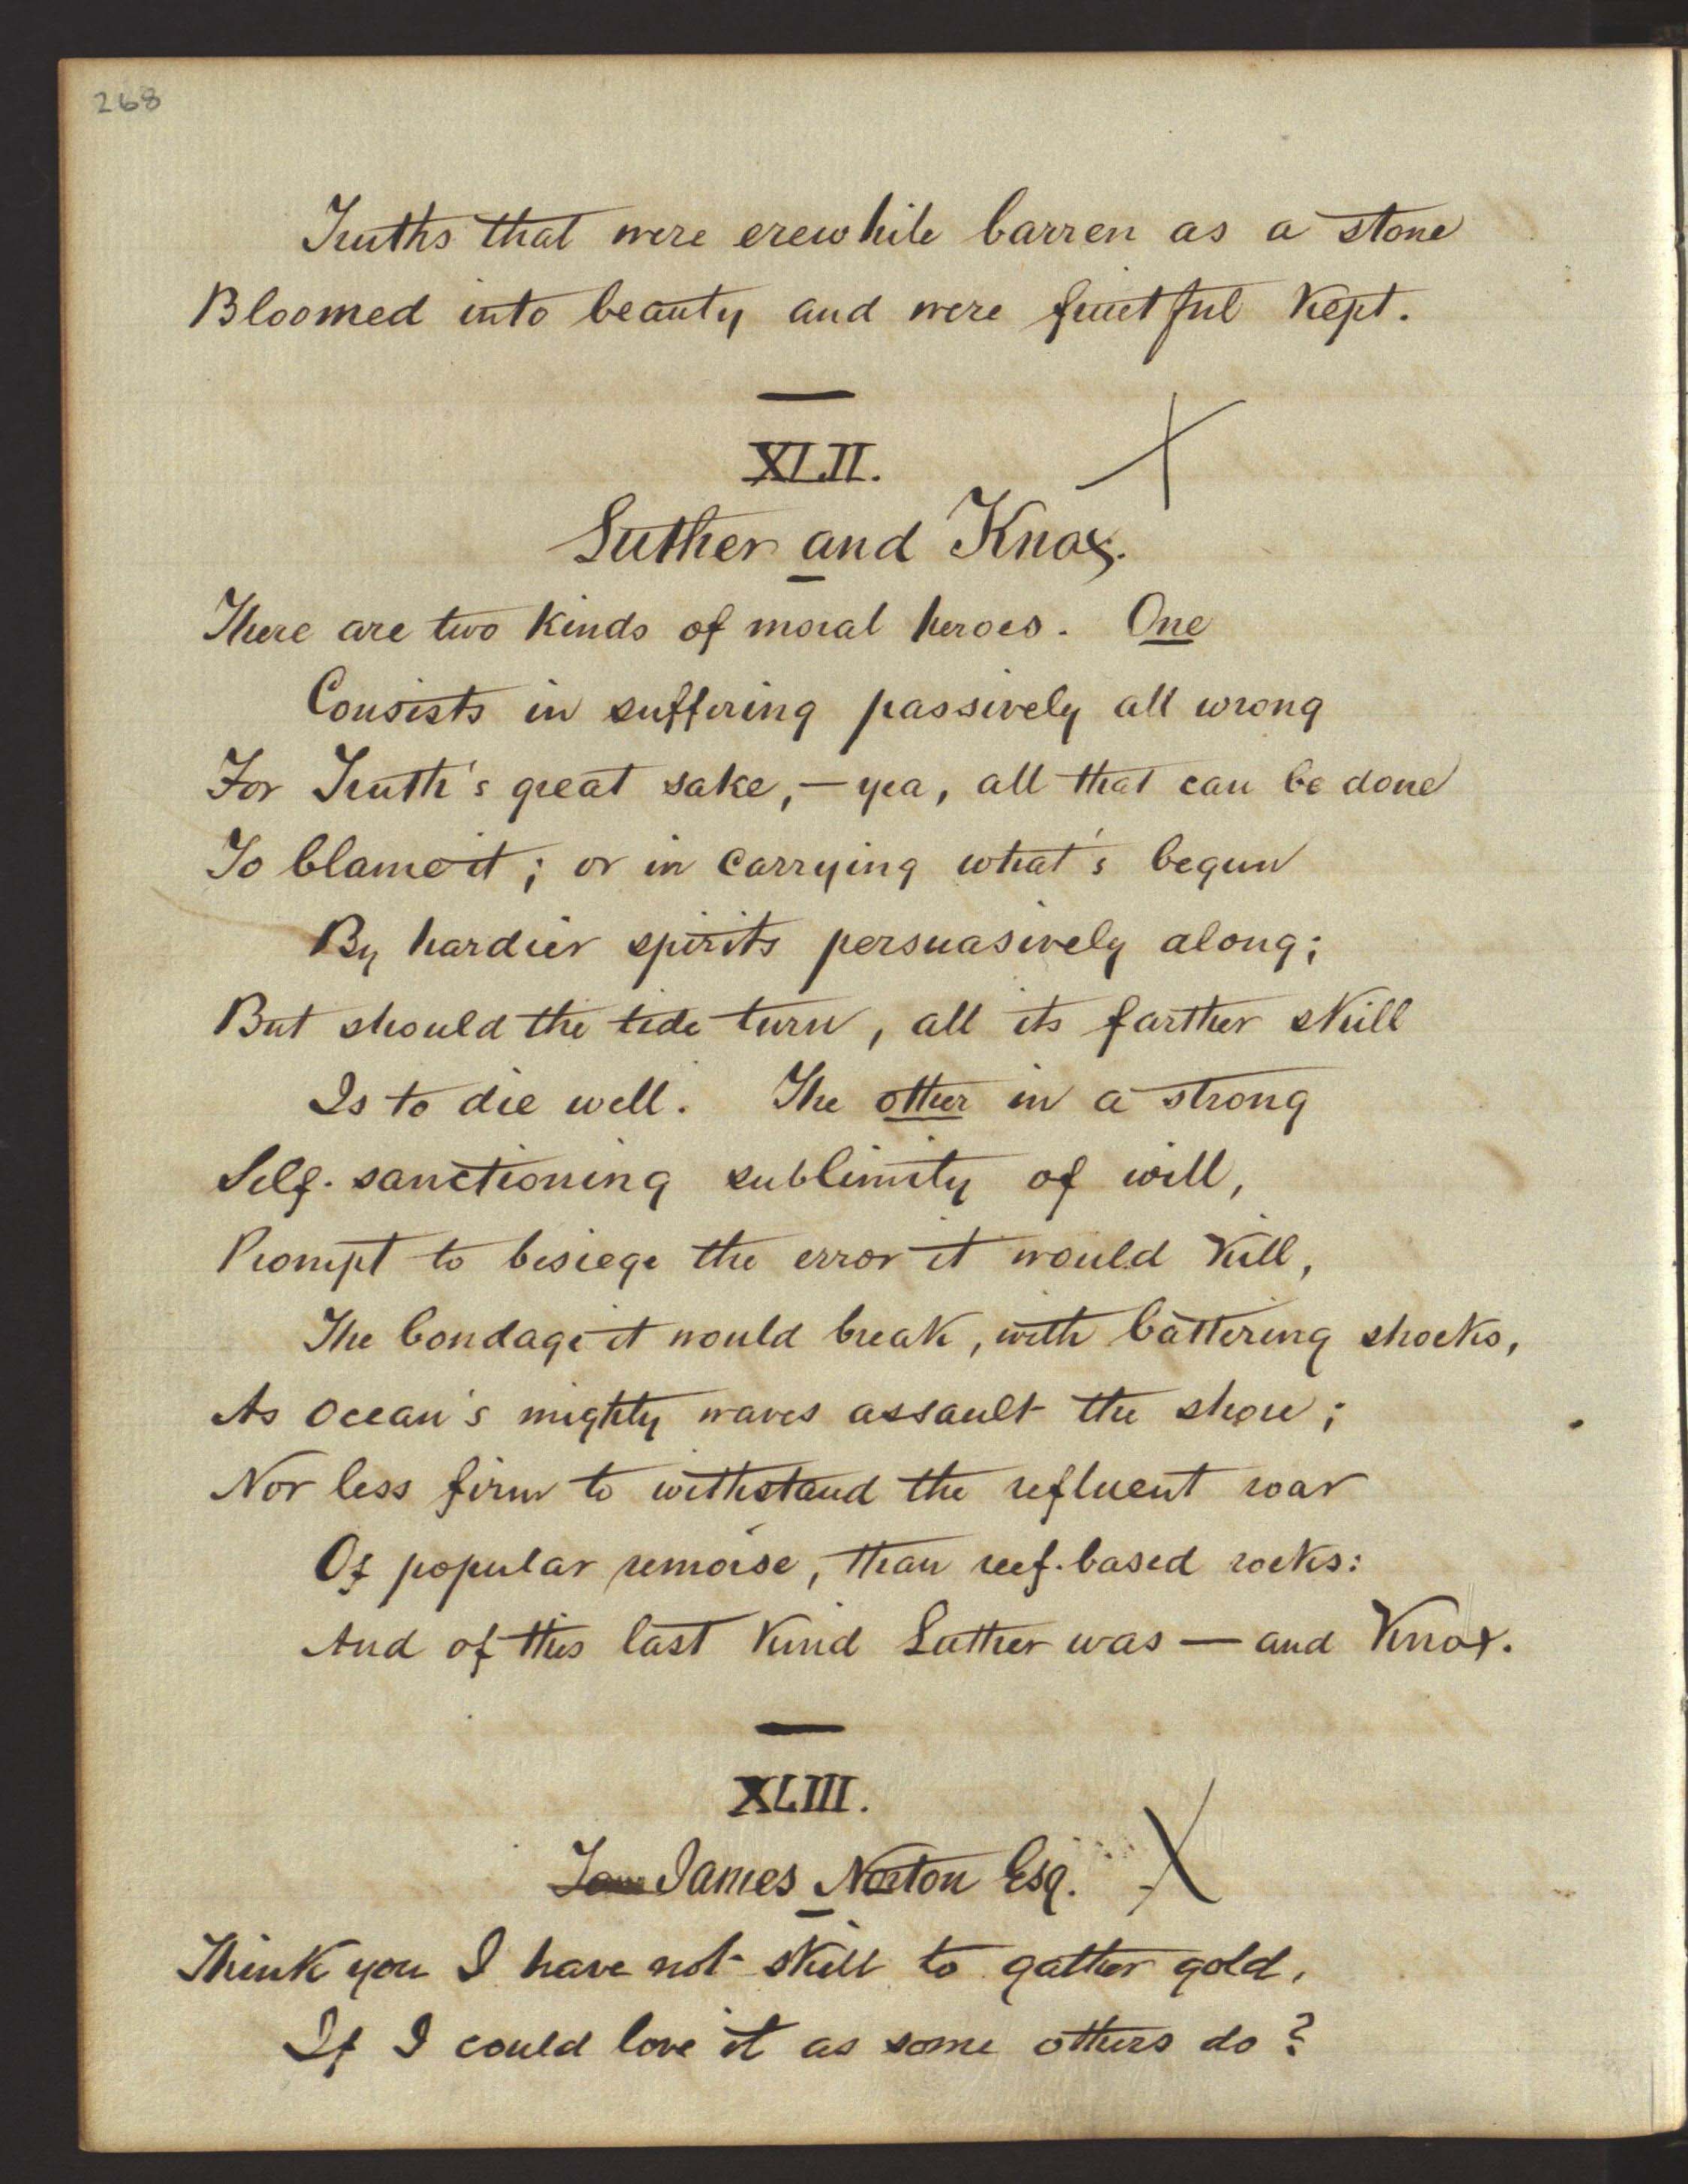 268
Truths that were erewhile barren as a stone
Bloomed into beauty and were fruitful kept.
XLII.
Luther and Knox.
There are two kinds of moral heroes. One
Consists in suffering passively all wrong
For Truth's great sake, — yea, all that can be done
To blame it; or in carrying what's begun
By hardier spirits persuasively along;
But should the tide turn, all its farther skill
Is to die well. The other in a strong
Self-sanctioning sublimity of will,
Prompt to besiege the error it would kill,
The bondage it would break, with battering shocks,
As ocean's mighty waves assault the shore;
Nor less firm to withstand the refluent roar
Of popular remorse, than reef-based rocks:
And of this last kind Luther was — and Knox.
XLIII.
James Norton Esq.
Think you I have not skill to gather gold,
If I could love it as some others do?